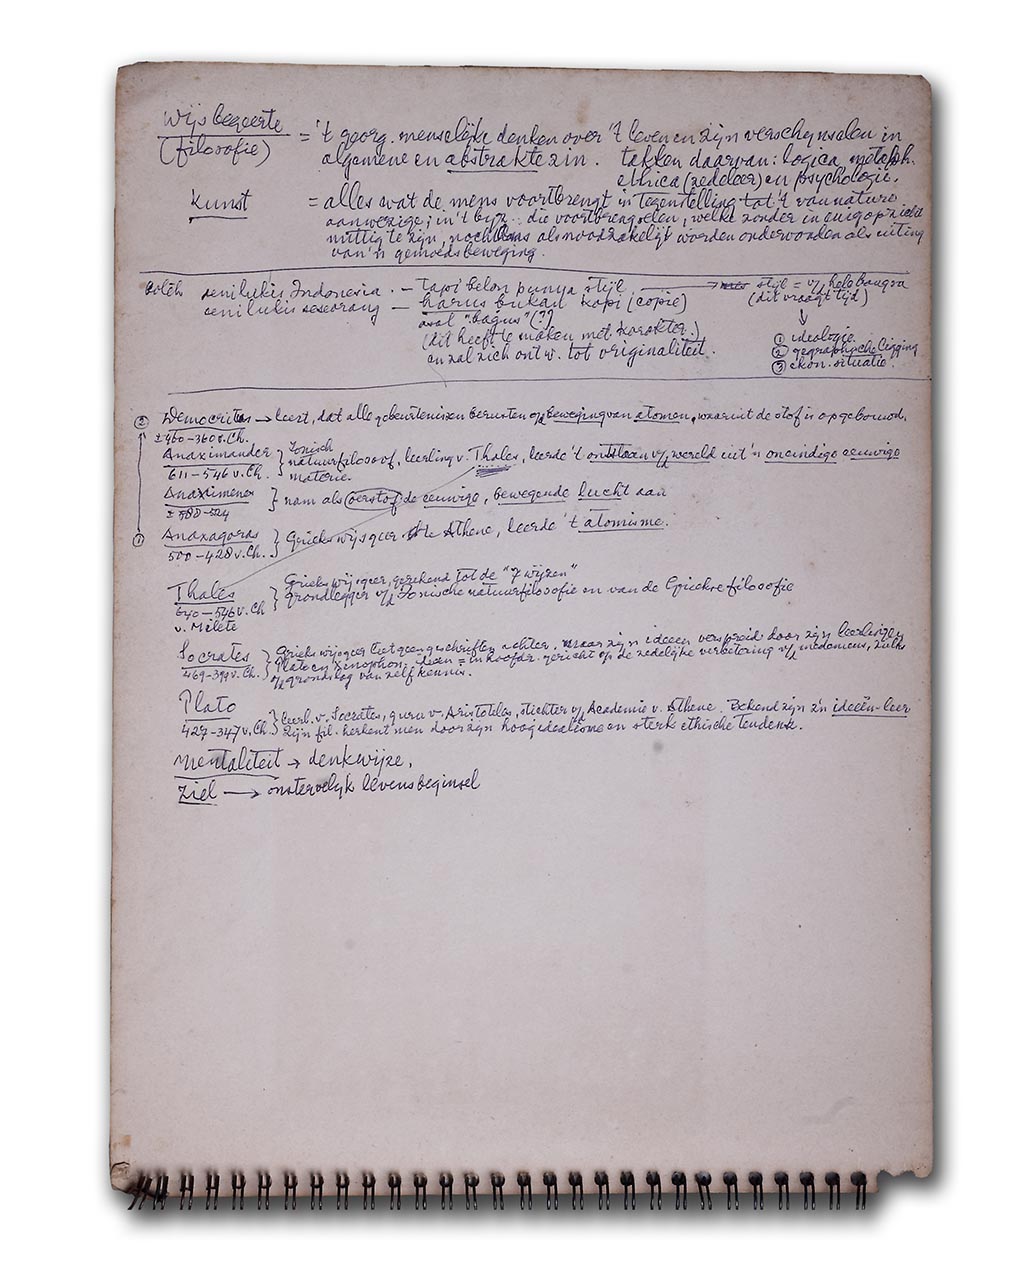 Wijsbegeerte
(filosofie)
= 't georg. menselijke denken over 't leven en zijn verschijnselen in
algemene en abstrakte zin. takken daarvan: logica, metaph.
ethica (zedeleer) en psychologie.
Kunst
= alles wat de mens voortbrengt in tegenstelling tot 't van nature
aanwezige; in 't byz. die voortbrengselen, welke zonder in enig opzicht
nuttig te zijn, nochtans als noodzakelijk worden ondervonden als uiting
van 'n gemoedsbeweging.
Boleh seni lukis Indonesia. – tapi belon punya stijl. → stijl = v/h hele bangsa
seni lukis seseorang – harus bukan kopi (copie) (dit vraagt tijd)
asal "bagus" (?)
(dit heeft te maken met karakter) ① ideologie
en zal zich ontw. tot originaliteit. ② geographische ligging
③ ekon. situatie.
② Democritus → leert, dat alle gebeurtenissen berusten op beweging van atomen, waaruit de stof is opgebouwd.
± 460–360 v. Ch.
Anaximander } Ionisch
natuurfilosoof, leerling v. Thales, leerde 't ontstaan v/d wereld uit 'n oneindige eeuwige
611–546 v. Ch. materie.
Anaximenes } nam als oerstof de eeuwige, bewegende lucht aan
± 580–524
① Anaxagoras } Grieks wijsgeer te Athene, leerde 't atomisme.
500–428 v. Ch.
Thales } Grieks wijsgeer, gerekend tot de "7 wijzen"
grondlegger v/d Ionische natuurfilosofie en van de Griekse filosofie
640–546 v. Ch
v. Milete
Socrates } Grieks wijsgeer liet geen geschriften achter, maar zijn ideeen verspreid door zijn leerlingen
Plato en Xenophon; leer = in hoofdz. gericht op de zedelijke verbetering v/d medemens, zulks
469–399 v. Ch. op grondslag van zelfkennis.
Plato
427–347 v. Ch. } leerl. v. Socrates, guru v. Aristoteles, stichter v/d Academie v. Athene. Bekend zijn z'n ideeën-leer
Zijn fil. herkent men door zijn hoog idealisme en sterk ethische tendenz.
Mentaliteit → denkwijze.
Ziel → onsterfelijk levensbeginsel